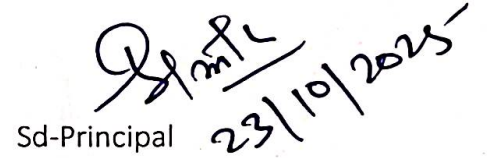 23/10/2025
Sd-Principal